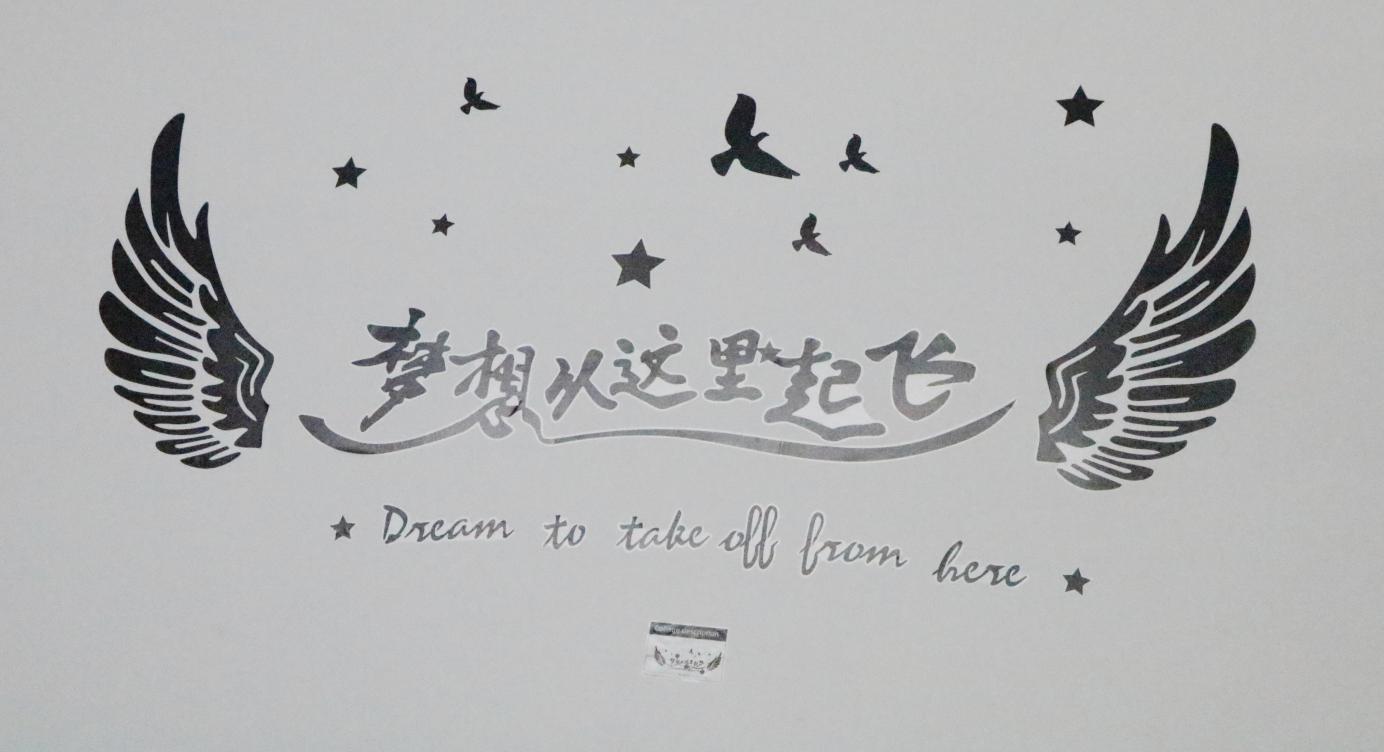 梦想从这里起飞
Dream to take off from here